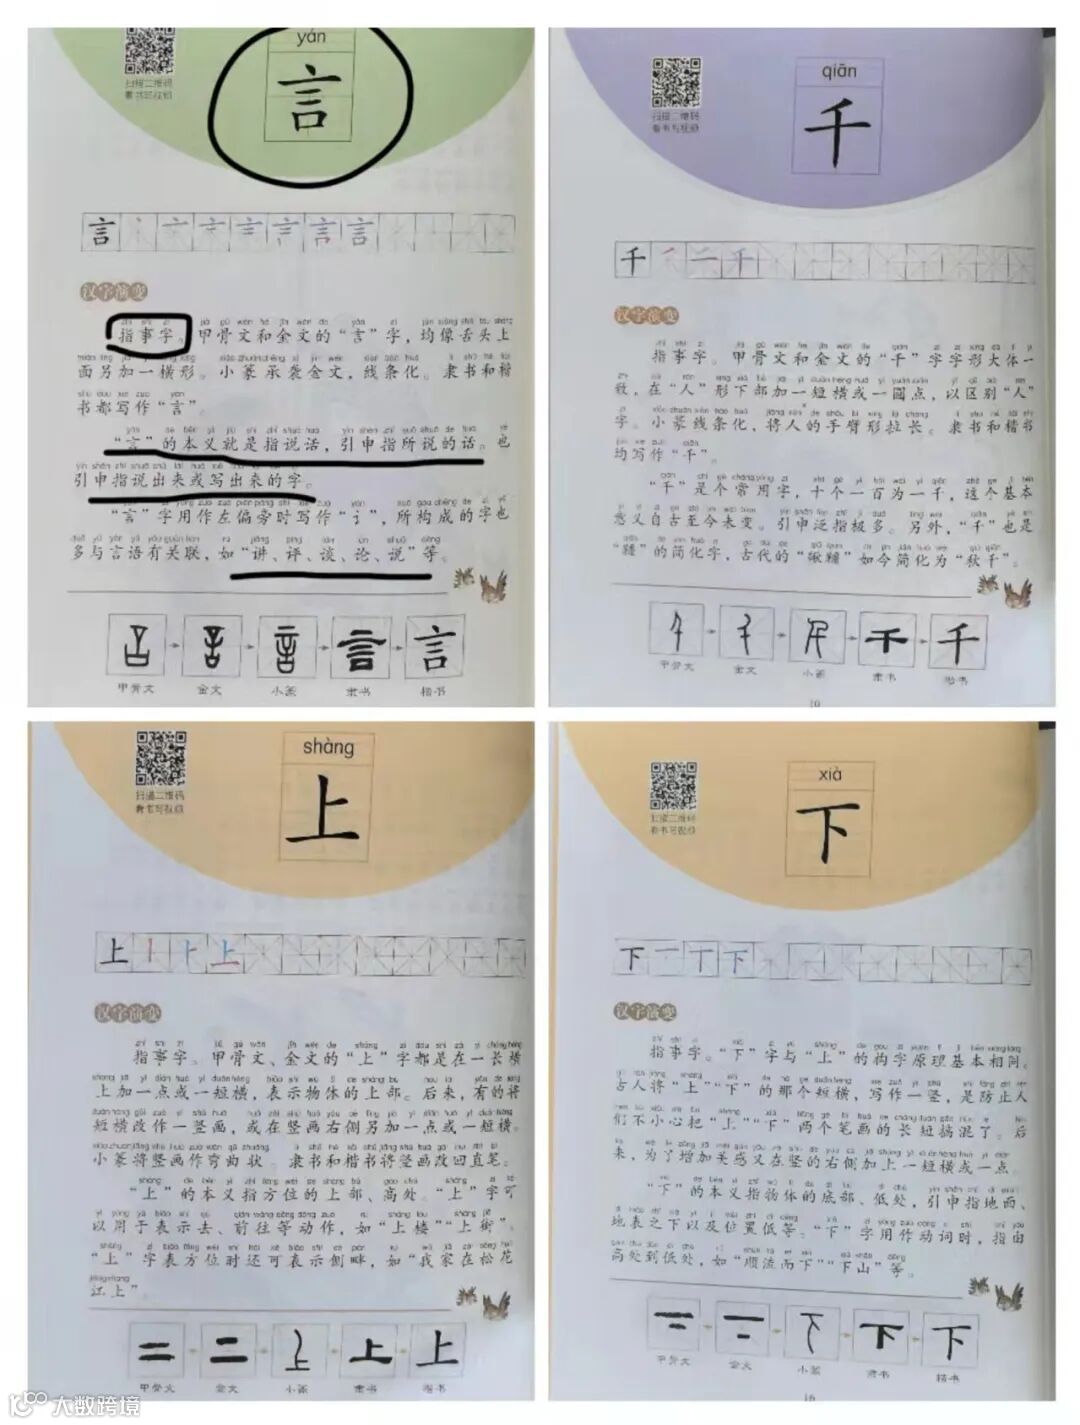 yán
扫描二维码
看书写视频
言
言
汉字演变
指事字。甲骨文和金文的“言”字,均像舌头上
面另加一横形。小篆承袭金文,线条化。隶书和楷
书都写作“言”。
“言”的本义就是指说话,引申指所说的话。也
引申指说出来或写出来的字。
“言”字用作左偏旁时写作“讠”,所构成的字也
多与言语有关联,如“讲、评、谈、论、说”等。
甲骨文 金文 小篆 隶书 楷书
qiān
扫描二维码
看书写视频
千
千
汉字演变
指事字。甲骨文和金文的“千”字字形大体一
致,在“人”形下部加一短横或一圆点,以区别“人”
字。小篆线条化,将人的手臂形拉长。隶书和楷书
均写作“千”。
“千”是个常用字,十个一百为一千,这个基本
意义自古至今未变。引申泛指极多。另外,“千”也是
“韆”的简化字,古代的“鞦韆”如今简化为“秋千”。
甲骨文 金文 小篆 隶书 楷书
10
shàng
扫描二维码
看书写视频
上
上
汉字演变
指事字。甲骨文、金文的“上”字都是在一长横
上加一点或一短横,表示物体的上部。后来,有的将
短横改作一竖画,或在竖画右侧另加一点或一短横。
小篆将竖画作弯曲状。隶书和楷书将竖画改回直笔。
“上”的本义指方位的上部、高处。“上”字可
以用于表示去、前往等动作,如“上楼”“上街”。
“上”字表方位时还可表示侧畔,如“我家在松花
江上”。
甲骨文 金文 小篆 隶书 楷书
xià
扫描二维码
看书写视频
下
下
汉字演变
指事字。“下”字与“上”的构字原理基本相同。
古人将“上”“下”的那个短横,写作一竖,是防止人
们不小心把“上”“下”两个笔画的长短搞混了。后
来,为了增加美感又在竖的右侧加上一短横或一点。
“下”的本义指物体的底部、低处,引申指地面、
地表之下以及位置低等。“下”字用作动词时,指由
高处到低处,如“顺流而下”“下山”等。
甲骨文 金文 小篆 隶书 楷书
16
大数跨境